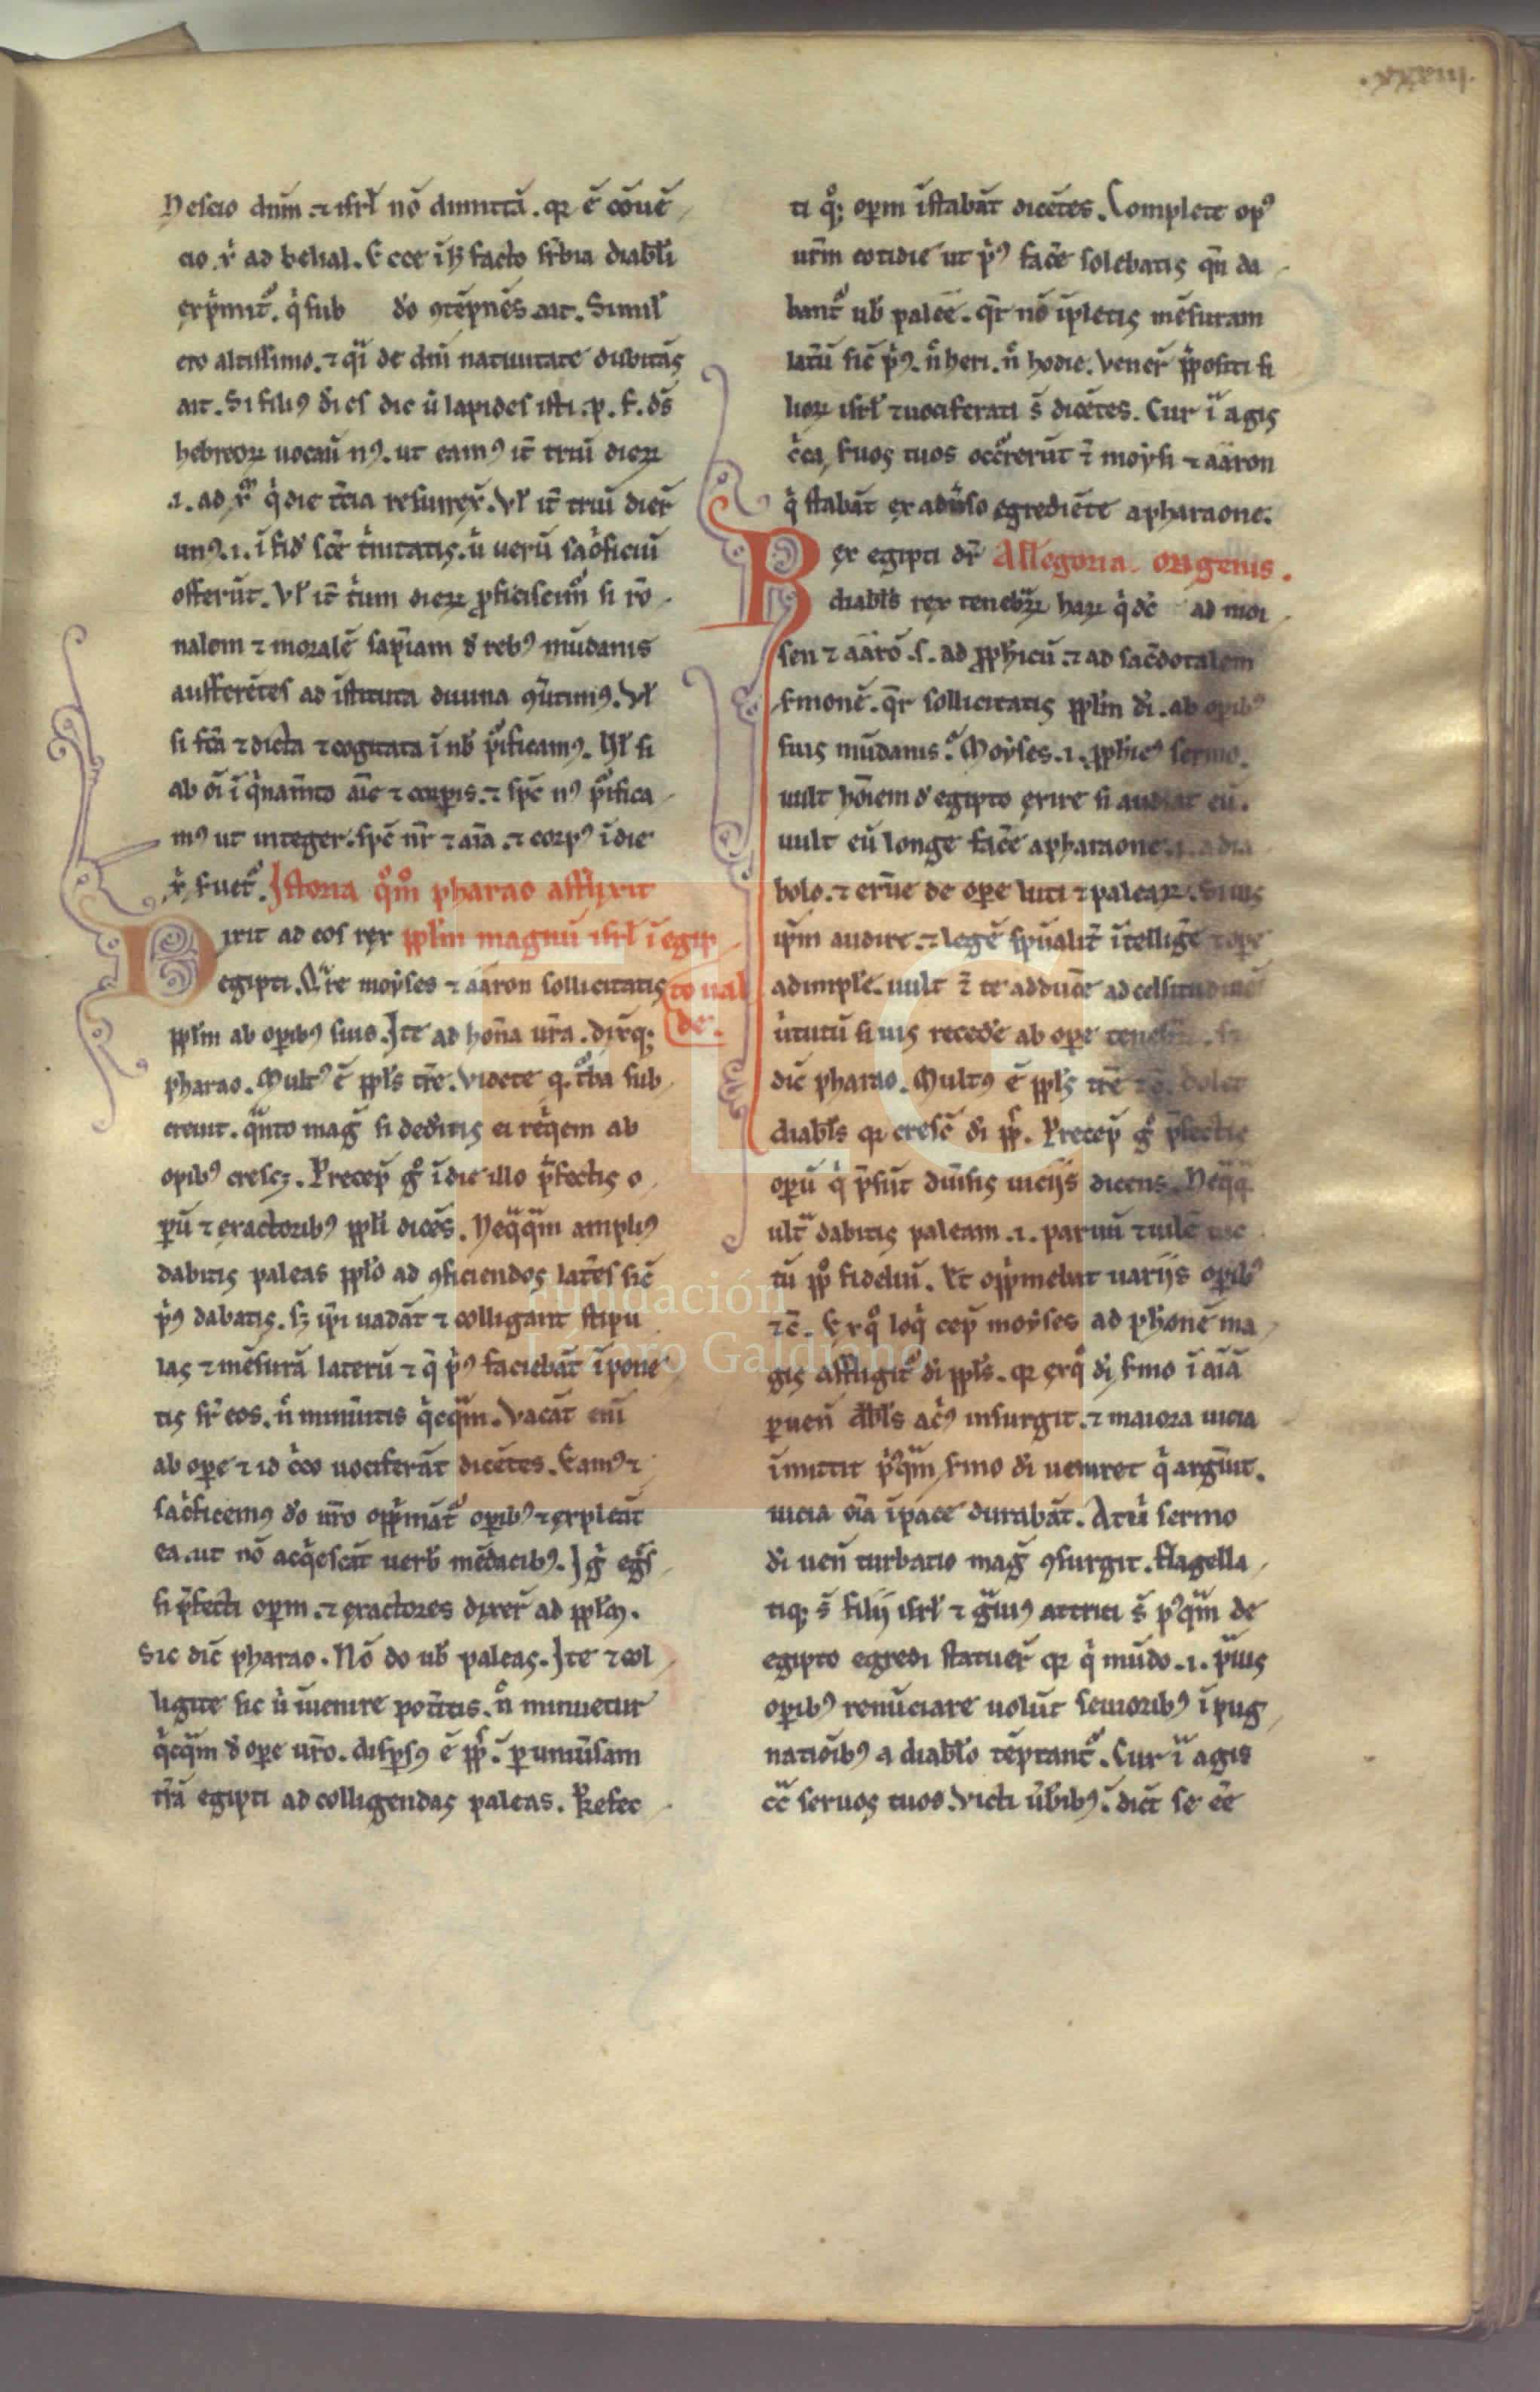 Nescio dn̄m ⁊ isrl̄ nō dimittā. qꝛ ē cōuē
cio x̄ ad belial. Ecce ī
exp̄mit᷑. q̇ sub do ꝯtēpnēs ait. Simil̄
ero altissimo. ⁊ qī de dn̄i natiuitate dubitās
ait. Si filiꝰ dī es dic ū lapides isti. p. f. ds̄
hebreoꝝ uocaū nꝰ. ut eamꝰ it̄ triū dieꝝ
.i. ad x̄ q̇ die t̄cia resurrex̄. Vl̄ it̄ triū dieꝝ
unꝰ .i. ī fid' sc̄e t̄nitatis. ū uerū sac̄ficiū
offerūt. Vl̄ it̄ t̄um dieꝝ ꝓficiscim᷑ si rō
nalem ⁊ moralē sapīam d' rebꝰ mūdanis
aufferētes ad īstituta diuina ꝯūtimꝰ. Vl̄
si fc̄a ⁊ dicta ⁊ cogitata ī nb̄ p̄ificamꝰ. Vl̄ si
ab oī īq̇namīto aīe ⁊ corꝑis. ⁊ sp̄c nꝰ p̄ifica
mꝰ ut integer. sp̄c nr̄ ⁊ aīa. ⁊ corpꝰ ī die
x̄ s̄uet᷑. Istoria qͦmͦ pharao afflixit
Dixit ad eos rex ppl̄m magnū isrl̄ ī egip
egipti. Q̄re moẏses ⁊ aaron sollicitatis to ual
ppl̄m ab oꝑibꝰ suis. Ite ad hon̄a ur̄a. dix̄qꝫ de.
pharao. Multꝰ ē ppl̄s tr̄e. Videte q. t̄ba sub
creuit. q̄nto maḡ si ded̄itis ei req̇em ab
opibꝰ crescꝫ. Precep̄ gͦ ī die illo p̄fectis o
ꝑū ⁊ exactoribꝰ ppl̄i dicēs. Neq̄q̄m ampliꝰ
dabitis paleas ppl̄o ad ꝯficiendos lat̄es sic̄
ṗꝰ dabatis. sꝫ ip̄i uadāt ⁊ colligant stipu
las ⁊ mēsurā laterū ⁊ q̄ ṗꝰ faciebāt īpone
tis sr̄ eos. n̄ minūitis q̇cq̄m. Vacāt enī
ab oꝑe ⁊ id c̄co uociferāt dicētes. Eamꝰ ⁊
sac̄ficemꝰ dō nr̄o opp̄māt᷑ oꝑibꝰ ⁊ expleāt
ea. ut nō acq̇escāt uerb̄ mēdacibꝰ. Iġ eg̃s
si p̄fecti oꝑm. ⁊ exactores dixer̄ ad ppl̄m.
Sic dic̄ pharao. Nō do ub̄ paleas. Ite ⁊ col
ligite sic ū īuenire pot̄itis. n̄ minuetur
q̇cq̄m d' oꝑe ur̄o. disꝑsꝰ ē pp̄s. ꝑ uniūsam
tr̄ā egipti ad colligendas paleas. Prefec
ti q̇qꝫ oꝑm īstabāt dicētes. Complete opꝰ
ur̄m cotidie ut ṗꝰ fac̄e solebatis qn̄ da
bant᷑ ub̄ palee. q̄r nō īpletis mēsuram
lat̄ū sic̄ ṗꝰ. n̄ heri. n̄ hodie. Vener̄ p̄positi fi
lioꝝ isrl̄ ⁊ uociferati s̄ dicētes. Cur īͣ agis
c̄ca suos tuos occ̄rerūt ⁊ moẏsi ⁊ aaron
q̇ stabāt ex adūso egrediēte a pharaone.
Rex egipti dr̄ Allegoria origenis.
diabl̄s rex tenebꝝ haꝝ q̇ dc̄ ad moi
sen ⁊ aarō .s. ad ꝓphicū. ⁊ ad sac̄dotalem
s̄monē. q̄r sollicitatis ppl̄m dī. ab opibꝰ
suis mūdanis. Moẏses .i. ꝓph̄icꝰ sermo.
uult hōīem d' egipto exire si audiat eū.
uult eū longe fac̄e a pharaone .i. a dia
bolo. ⁊ erūe de oꝑe luti ⁊ paleaꝝ. Si uis
ip̄m audire. ⁊ legē sp̄ualit̄ ītelliḡe ⁊ oꝑe
adimple. uult ⁊ te adduc̄e ad celsitudinē
ūtutū si uis reced̄e ab oꝑe
dic̄ pharao. Multꝰ ē ppl̄s tr̄e ⁊ c̄. dolet
diabl̄s qꝛ cresc̄ dī pp̄s. Precep̄ gͦ p̄fectis
oꝑū q̇ p̄sūt dūisis uiciis dicens. Neq̄q̄
ult̄ dabitis paleam .i. paruū ⁊ uilē
tū pp̄ fideliū. Et opp̄mebat uariis oꝑibꝰ
⁊ c̄. Ex qͦ loq̇ cep̄ moẏses ad ph̄onē ma
gis affligit᷑ dī ppl̄s. qꝛ ex qͦ dī s̄mo ī aīā
ꝑuen̄ dbl̄s ac̄ꝰ insurgit. ⁊ maiora uicia
īmittit ṗꝰq̄m s̄mo dī ueniret q̇ argūit.
uicia oīa ī pace durabāt. At ū sermo
dī uen̄ turbatio maḡ ꝯsurgit. flagella
tiqꝫ s̄ filij isrl̄ ⁊ g̃uiꝰ attriti s̄ pꝰq̄m de
egipto egredi statuer̄ qꝛ q̇ mūdo .i. p̄uis
oꝑibꝰ renūciare uolūt seuioribꝰ īpug
natiōibꝰ a diabl̄o tēptant᷑. Cur īͣ agis
cͨ seruos tuos. Victi ūbibꝰ. dic̄t se ee